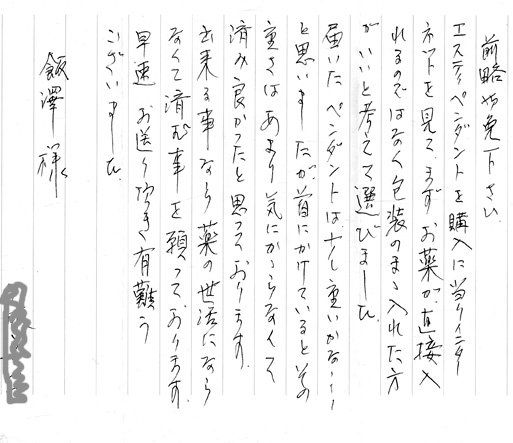 前略御免下さい
エスティペンダントを購入に当りインター
ネットを見て、まずお薬が直接入
れるのではなく包装のまゝ入れた方
がいいと考えて選びました。
届いたペンダントは少し重いかな…
と思いましたが首にかけているとその
重さはあまり気にかゝらなくて
済み良かったと思っております。
出来る事なら薬の世話になら
なくて済む事を願っております。
早速お送り頂き有難う
ございました。
飯澤様